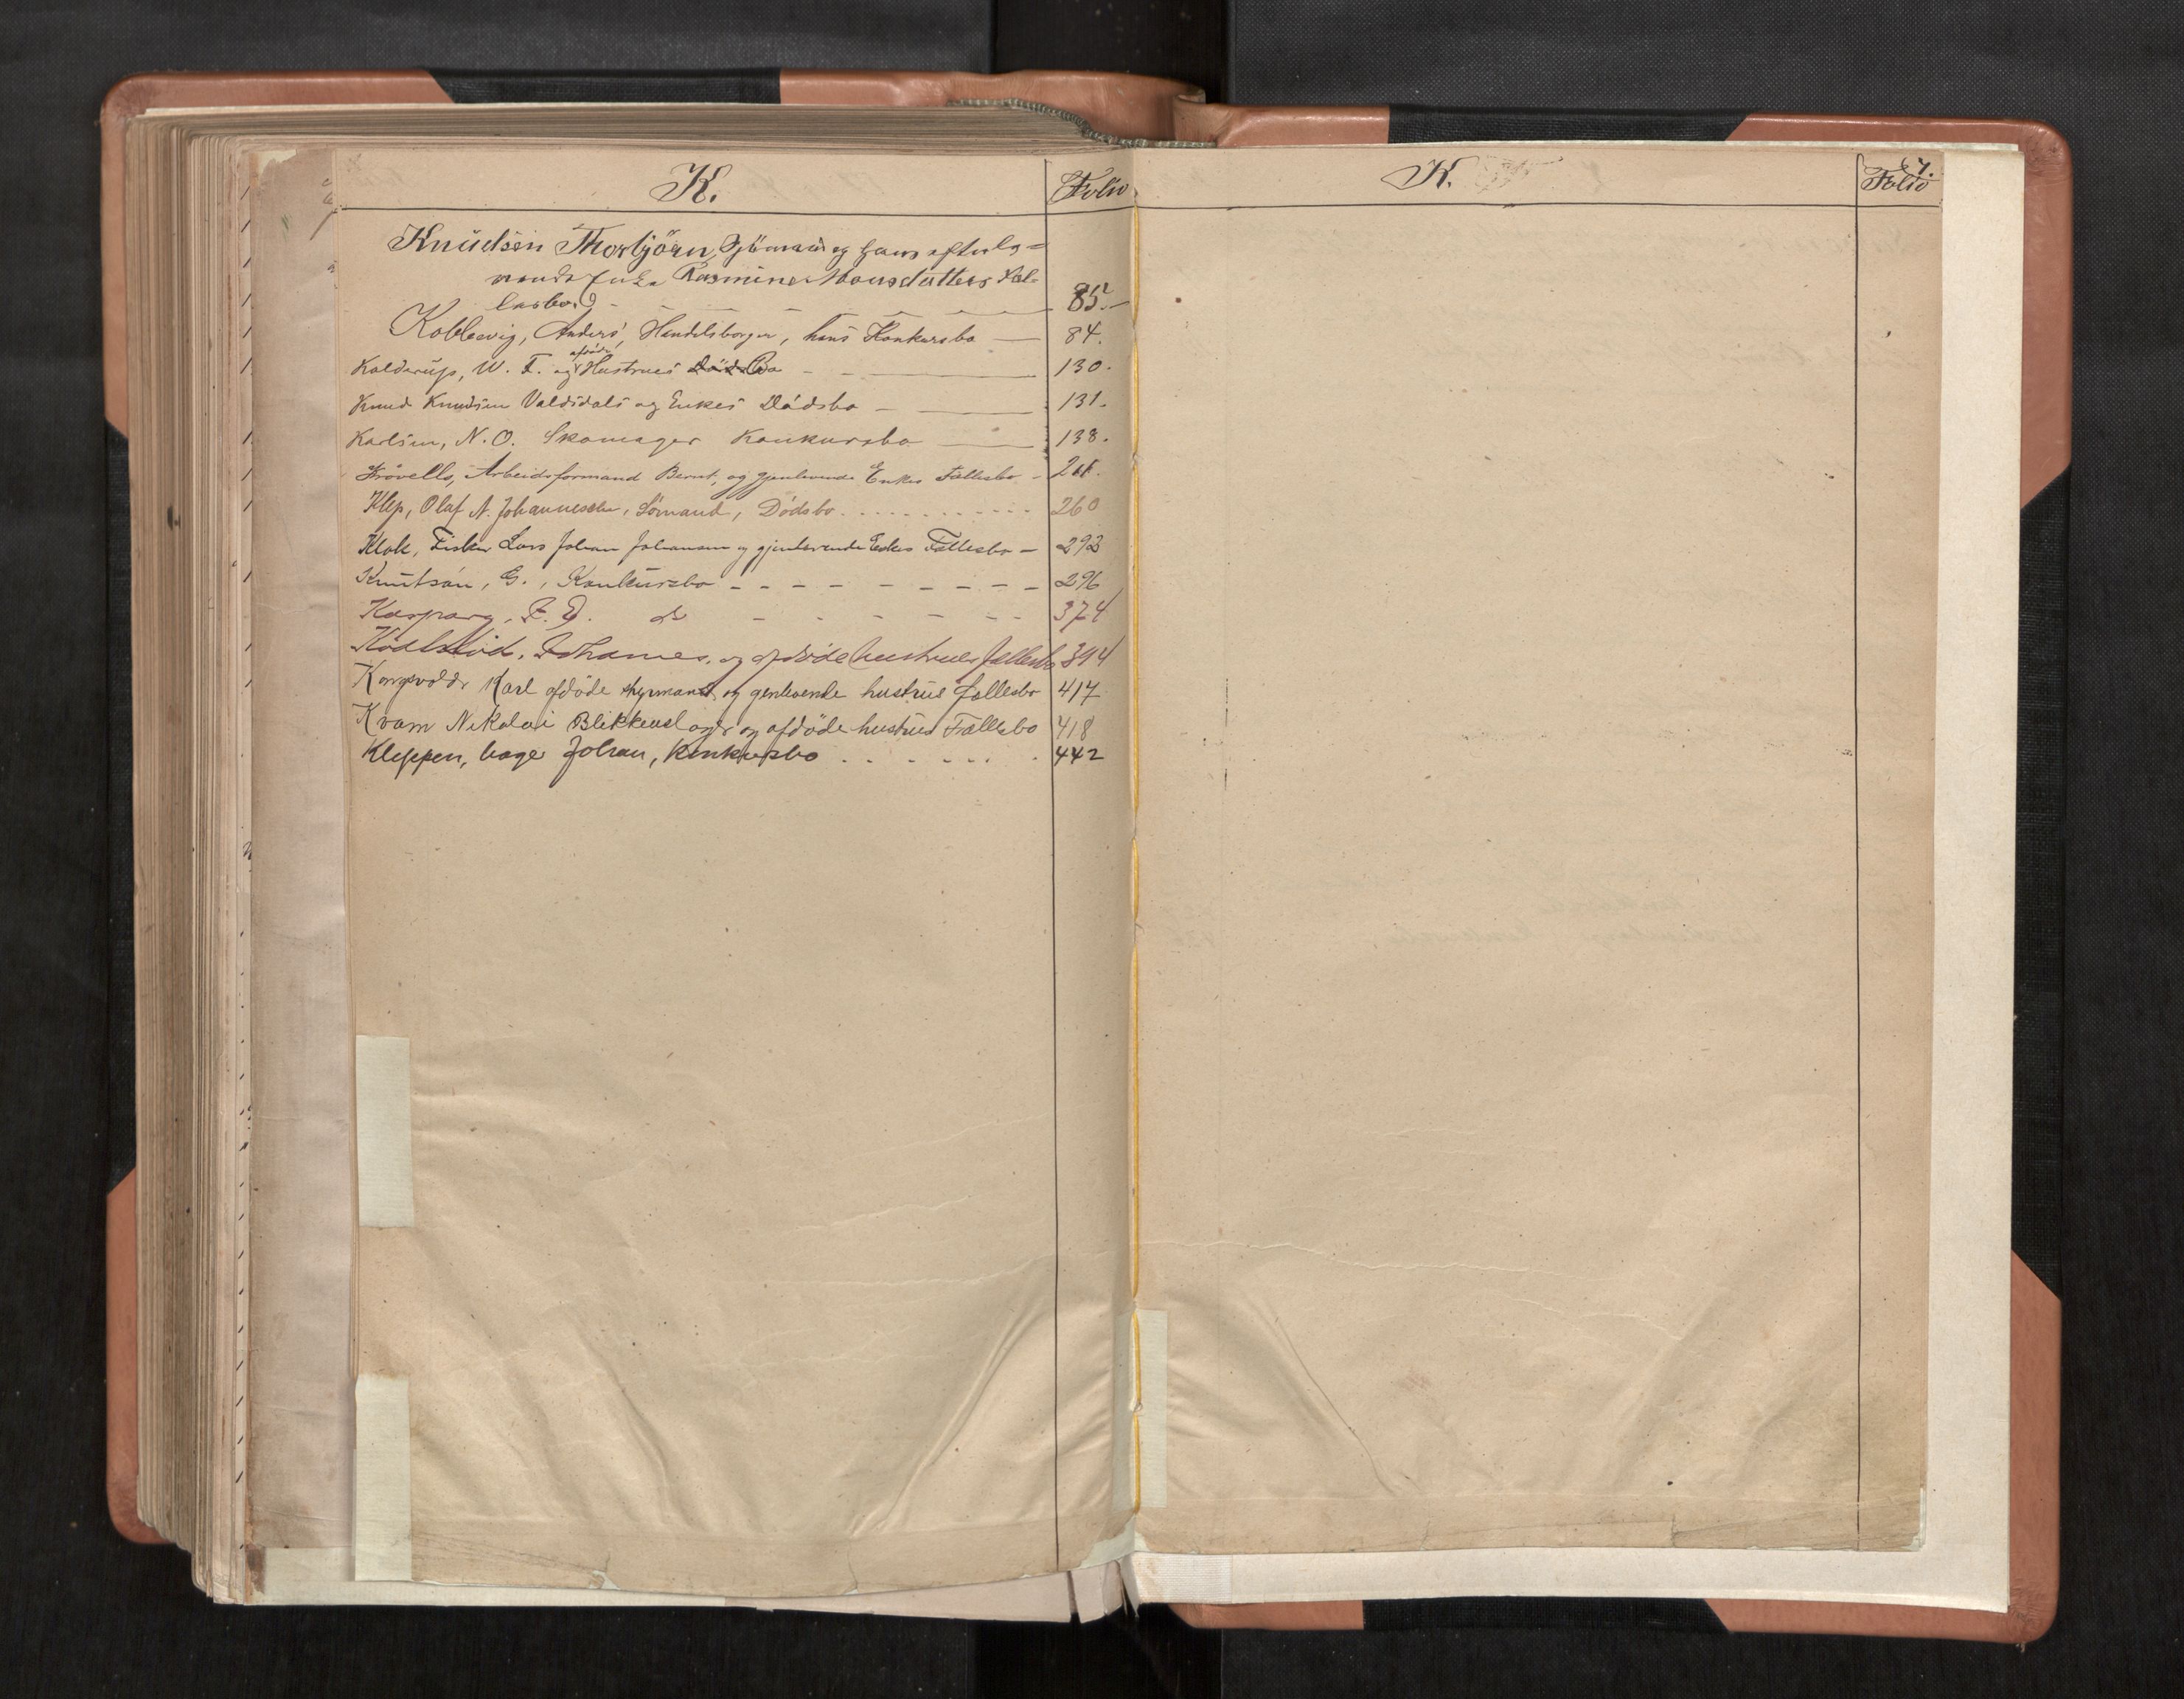 K.
Folio
Knudsen Thorbjörn, Sjömand og hans efterle=
vende Enke Rasmine Monsdatters Fæl-
lesbo
85.
Koblevig, Anders, Handelsborger, hans Konkursbo
84.
Kalderup, W. F. og afdøde Hustrues Bo
130.
Knud Knudsen Valdsdals og Enkes Dödsbo
131.
Karlsen, N. O. Skomager Konkursbo
138.
Arbeidsformand Bernt, og gjenlevende Enkes Fællesbo
Klep, Olaf N. Johannessen, Sömand, Dödsbo
260
Klok, Fisker Lars Johan Johansen og gjenlevende Enkes Fællesbo
293
Knutsen, G., Konkursbo
296
Kaspary, F. E. do
374
Johannes, og afdöde hustrues fællesbo
394
Kongsvolds Karl afdöde styrmand og genlevende hustrus fællesbo
417
Kvam Nikolai Blikkenslager og afdöde hustrus Fællesbo
418
Kleppen, bager Johan, Konkursbo
442
K.
67.
Folio